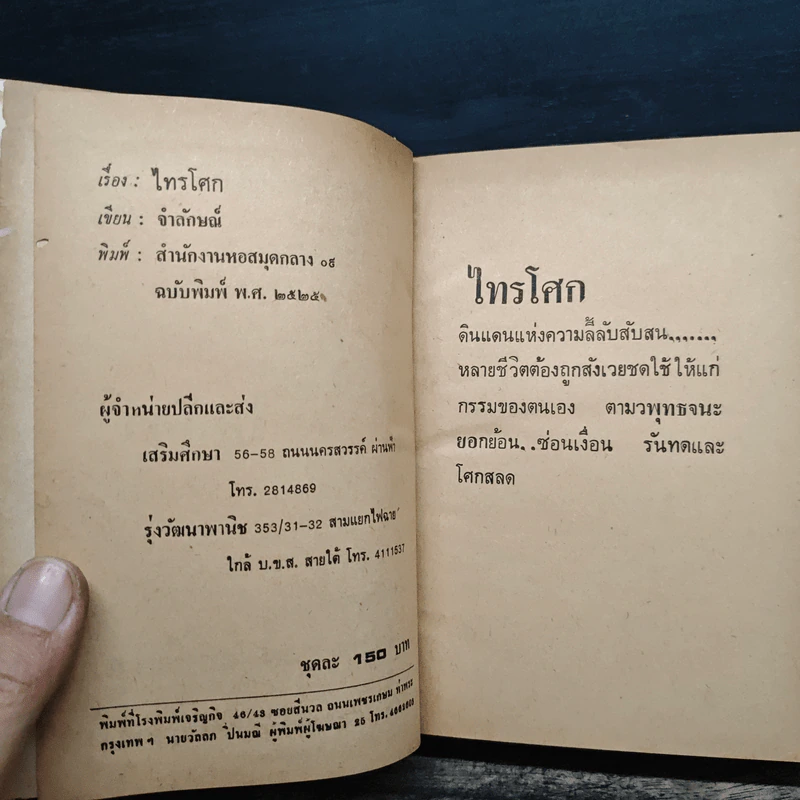 เรื่อง : ไทรโศก
เขียน : จำลักษณ์
พิมพ์ : สำนักงานหอสมุดกลาง ๐๙
ฉบับพิมพ์ พ.ศ. ๒๕๒๕
ผู้จำหน่ายปลีกและส่ง
เสริมศึกษา 56-58 ถนนนครสวรรค์ ผ่านฟ้า
โทร. 2814869
รุ่งวัฒนาพานิช 353/31-32 สามแยกไฟฉาย
ใกล้ บ.ข.ส. สายใต้ โทร. 4111537
ชุดละ 150 บาท
พิมพ์ที่โรงพิมพ์เจริญกิจ 46/43 ซอยสีนวล ถนนเพชรเกษม ท่าพระ
กรุงเทพฯ นายวัลลภ ปิ่นมณี ผู้พิมพ์ผู้โฆษณา 25 โทร.
ไทรโศก
ดินแดนแห่งความลี้ลับสับสน........
หลายชีวิตต้องถูกสังเวยชดใช้ให้แก่
กรรมของตนเอง ตามวพุทธจนะ
ยอกย้อน..ซ่อนเงื่อน รันทดและ
โศกสลด